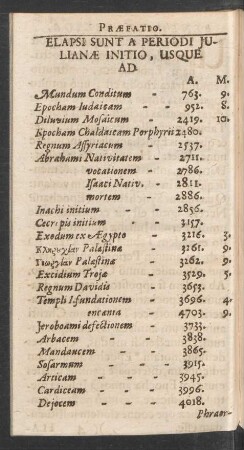 PRÆFATIO.
ELAPSI SUNT A PERIODI JU-
LIANÆ INITIO, USQUE
AD
A. M.
Mundum Conditum - 763. 9.
Epocham Iudaicam - 952. 8.
Diluvium Mosaicum - 2419. 10.
Epocham Chaldaicam Porphyrii 2480.
Regnum Assyriacum - 2537.
Abrahami Nativitatem - 2711.
vocationem - 2786.
Isaaci Nativ. - 2811.
mortem - 2886.
Inachi initium - - 2856.
Cecropis initium - 3157.
Exodum ex Ægypto - 3216. 3.
Palæstinæ 3261. 9.
Palæstinæ - 3262. 9.
Excidium Trojæ - 3529. 5.
Regnum Davidis - 3653.
Templi fundationem - 3696. 4.
encænia - 4703. 9.
Jeroboami defectionem 3733.
Arbacem - - 3838.
Mandaucem - 3865.
Sosarmum - - 3915.
Articam - - 3945.
Cardiceam - - 3996.
Dejocem - - 4018.
Phraor-